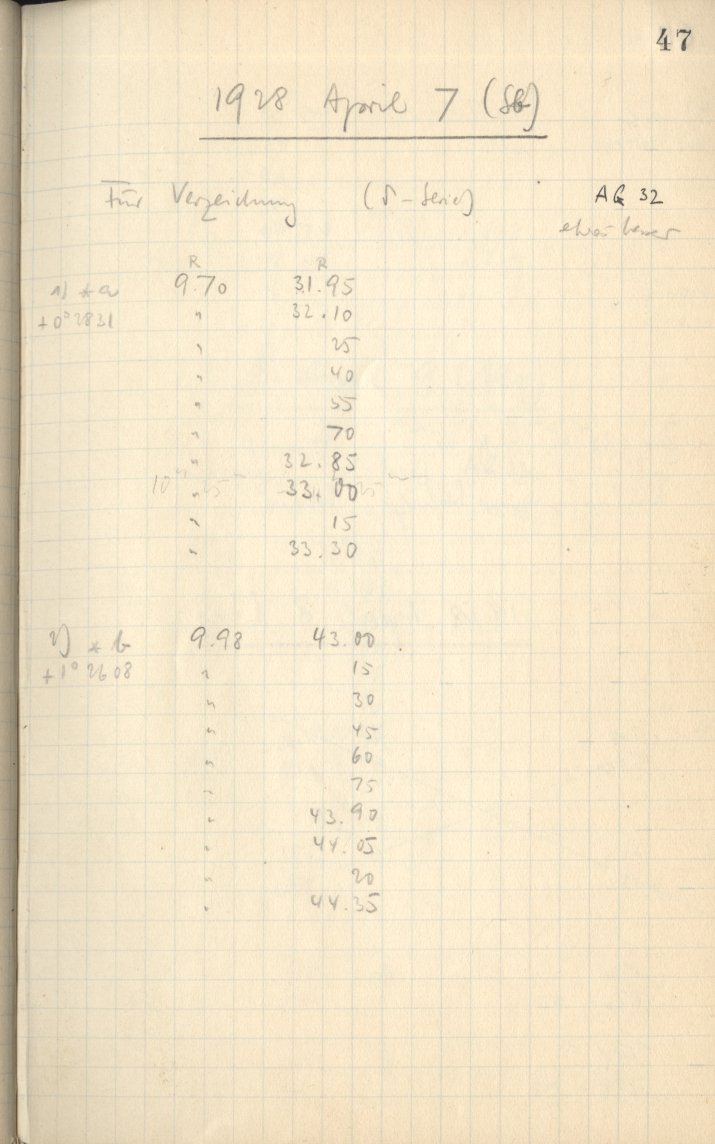 47
1928 April 7 (Sb)
Für Verzeichnung (δ-Serie) AG 32
etwas besser
R R
1) * a 9.70 31.95
+0° 2831 " 32.10
" 25
" 40
" 55
" 70
" 32.85
" 33.00
" 15
" 33.30
2) * b 9.98 43.00
+1° 2608 " 15
" 30
" 45
" 60
" 75
" 43.90
" 44.05
" 20
" 44.35